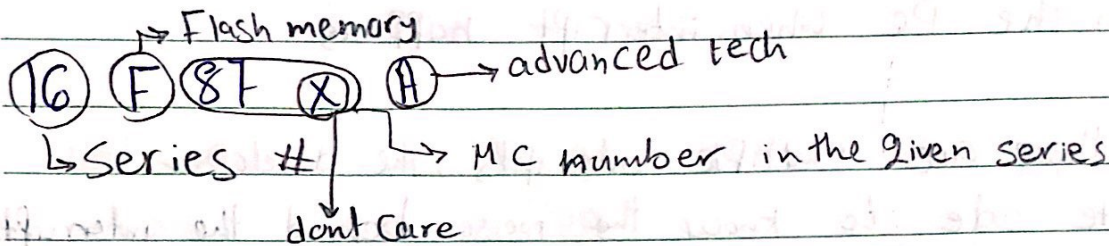 Flash memory
16 F 87 X A → advanced tech
Series # MC number in the given series
dont care